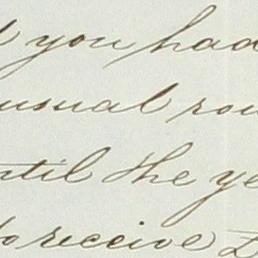 you had
usual rou
until the ye
to receive